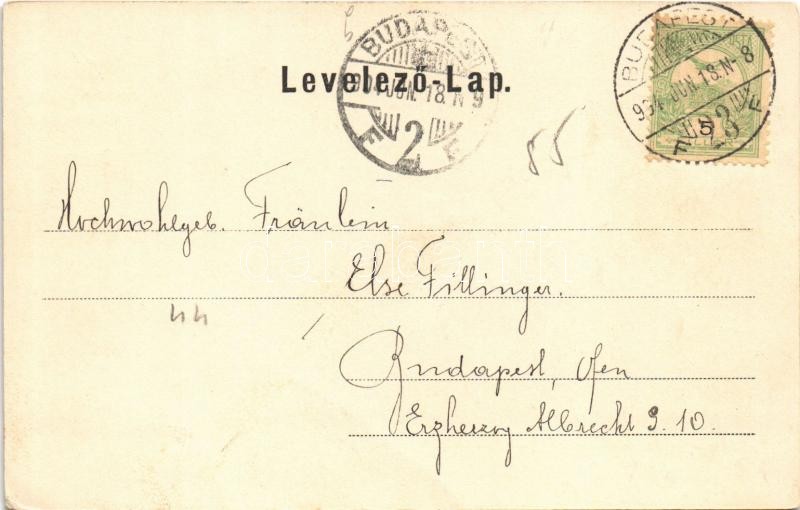 BUDAPEST
904 JUN. 18. N 9
F 2 F
Levelező-Lap.
BUDAPEST
904 JUN. 18. N- 8
F 5 23 F
55
Hochwohlgeb. Fräulein
Else Fillinger.
44
Budapest, Ofen
Erzherzog Albrecht S. 10.